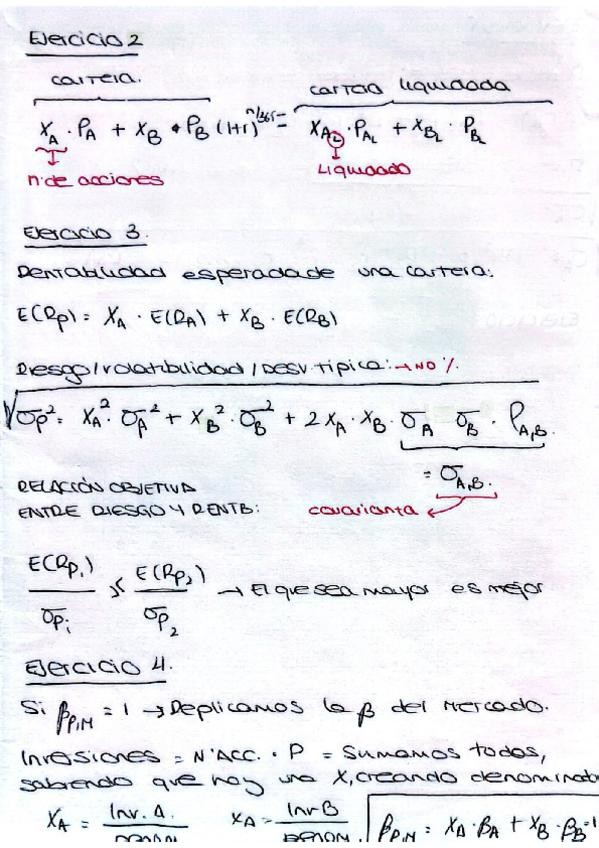 Ejercicio 2
cartera. cartera liquidada
X_A · P_A + X_B · P_B (1+r)^{n/365} = X_{A_L} · P_{A_L} + X_{B_L} · P_{B_L}
nº de acciones Liquidado
Ejercicio 3.
Rentabilidad esperada de una cartera:
E(R_p) = X_A · E(R_A) + X_B · E(R_B)
Riesgo/volatibilidad/Desv. típica: → NO %.
√σ_p² = X_A² · σ_A² + X_B² · σ_B² + 2 X_A · X_B · σ_A σ_B · ρ_{A,B}
= σ_{A,B}.
RELACIÓN OBJETIVA
ENTRE RIESGO Y RENTB: covarianza
E(R_{P1})/σ_{P1} >< E(R_{P2})/σ_{P2} → El que sea mayor es mejor
Ejercicio 4.
Si β_{P,M} = 1 → Replicamos la β del Mercado.
Inversiones = NºACC. · P = Sumamos todos,
sabiendo que hay una X, creando
X_A = Inv. A. X_A = Inv B β_{P,M} = X_A · β_A + X_B · β_B = 1